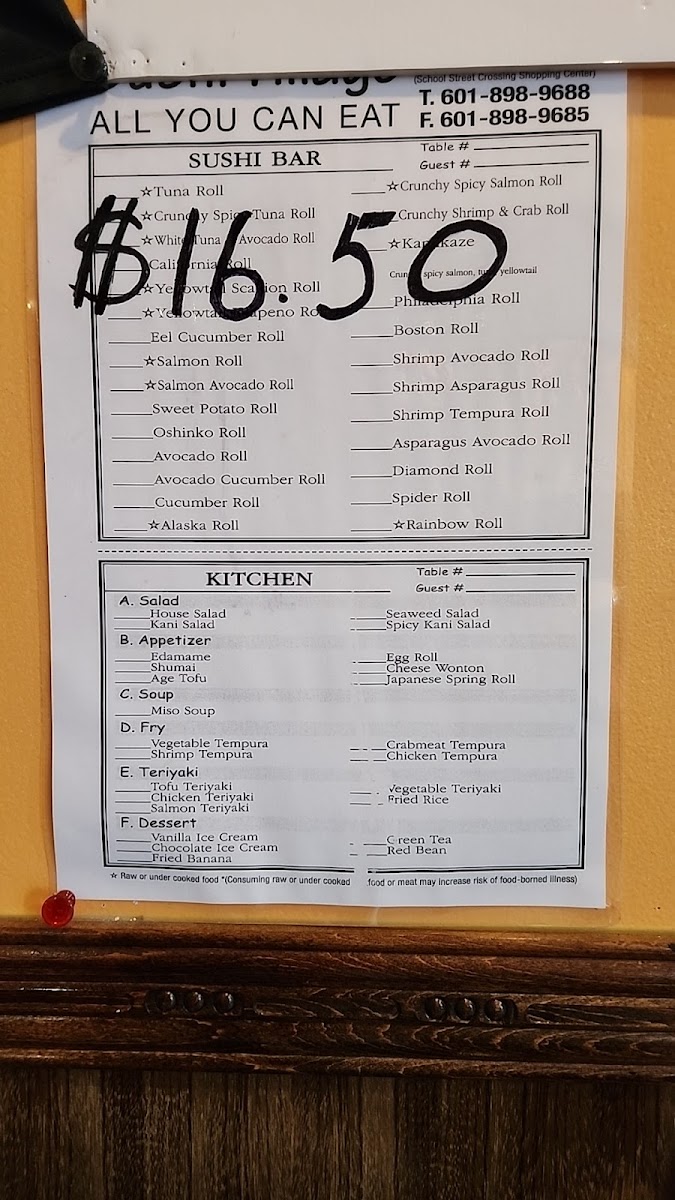 (School Street Crossing Shopping Center)
ALL YOU CAN EAT
T. 601-898-9688
F. 601-898-9685
SUSHI BAR
Table #
Guest #
$16.50
☆Tuna Roll
☆Crunchy Spicy Tuna Roll
☆White Tuna Avocado Roll
California Roll
☆Yellowtail Scallion Roll
☆Yellowtail Jalapeno Roll
Eel Cucumber Roll
☆Salmon Roll
☆Salmon Avocado Roll
Sweet Potato Roll
Oshinko Roll
Avocado Roll
Avocado Cucumber Roll
Cucumber Roll
☆Alaska Roll
☆Crunchy Spicy Salmon Roll
Crunchy Shrimp & Crab Roll
☆Kamikaze
Crunchy spicy salmon, tuna, yellowtail
Philadelphia Roll
Boston Roll
Shrimp Avocado Roll
Shrimp Asparagus Roll
Shrimp Tempura Roll
Asparagus Avocado Roll
Diamond Roll
Spider Roll
☆Rainbow Roll
KITCHEN
Table #
Guest #
A. Salad
House Salad
Kani Salad
Seaweed Salad
Spicy Kani Salad
B. Appetizer
Edamame
Shumai
Age Tofu
Egg Roll
Cheese Wonton
Japanese Spring Roll
C. Soup
Miso Soup
D. Fry
Vegetable Tempura
Shrimp Tempura
Crabmeat Tempura
Chicken Tempura
E. Teriyaki
Tofu Teriyaki
Chicken Teriyaki
Salmon Teriyaki
Vegetable Teriyaki
Fried Rice
F. Dessert
Vanilla Ice Cream
Chocolate Ice Cream
Fried Banana
Green Tea
Red Bean
☆ Raw or under cooked food *(Consuming raw or under cooked food or meat may increase risk of food-borned illness)